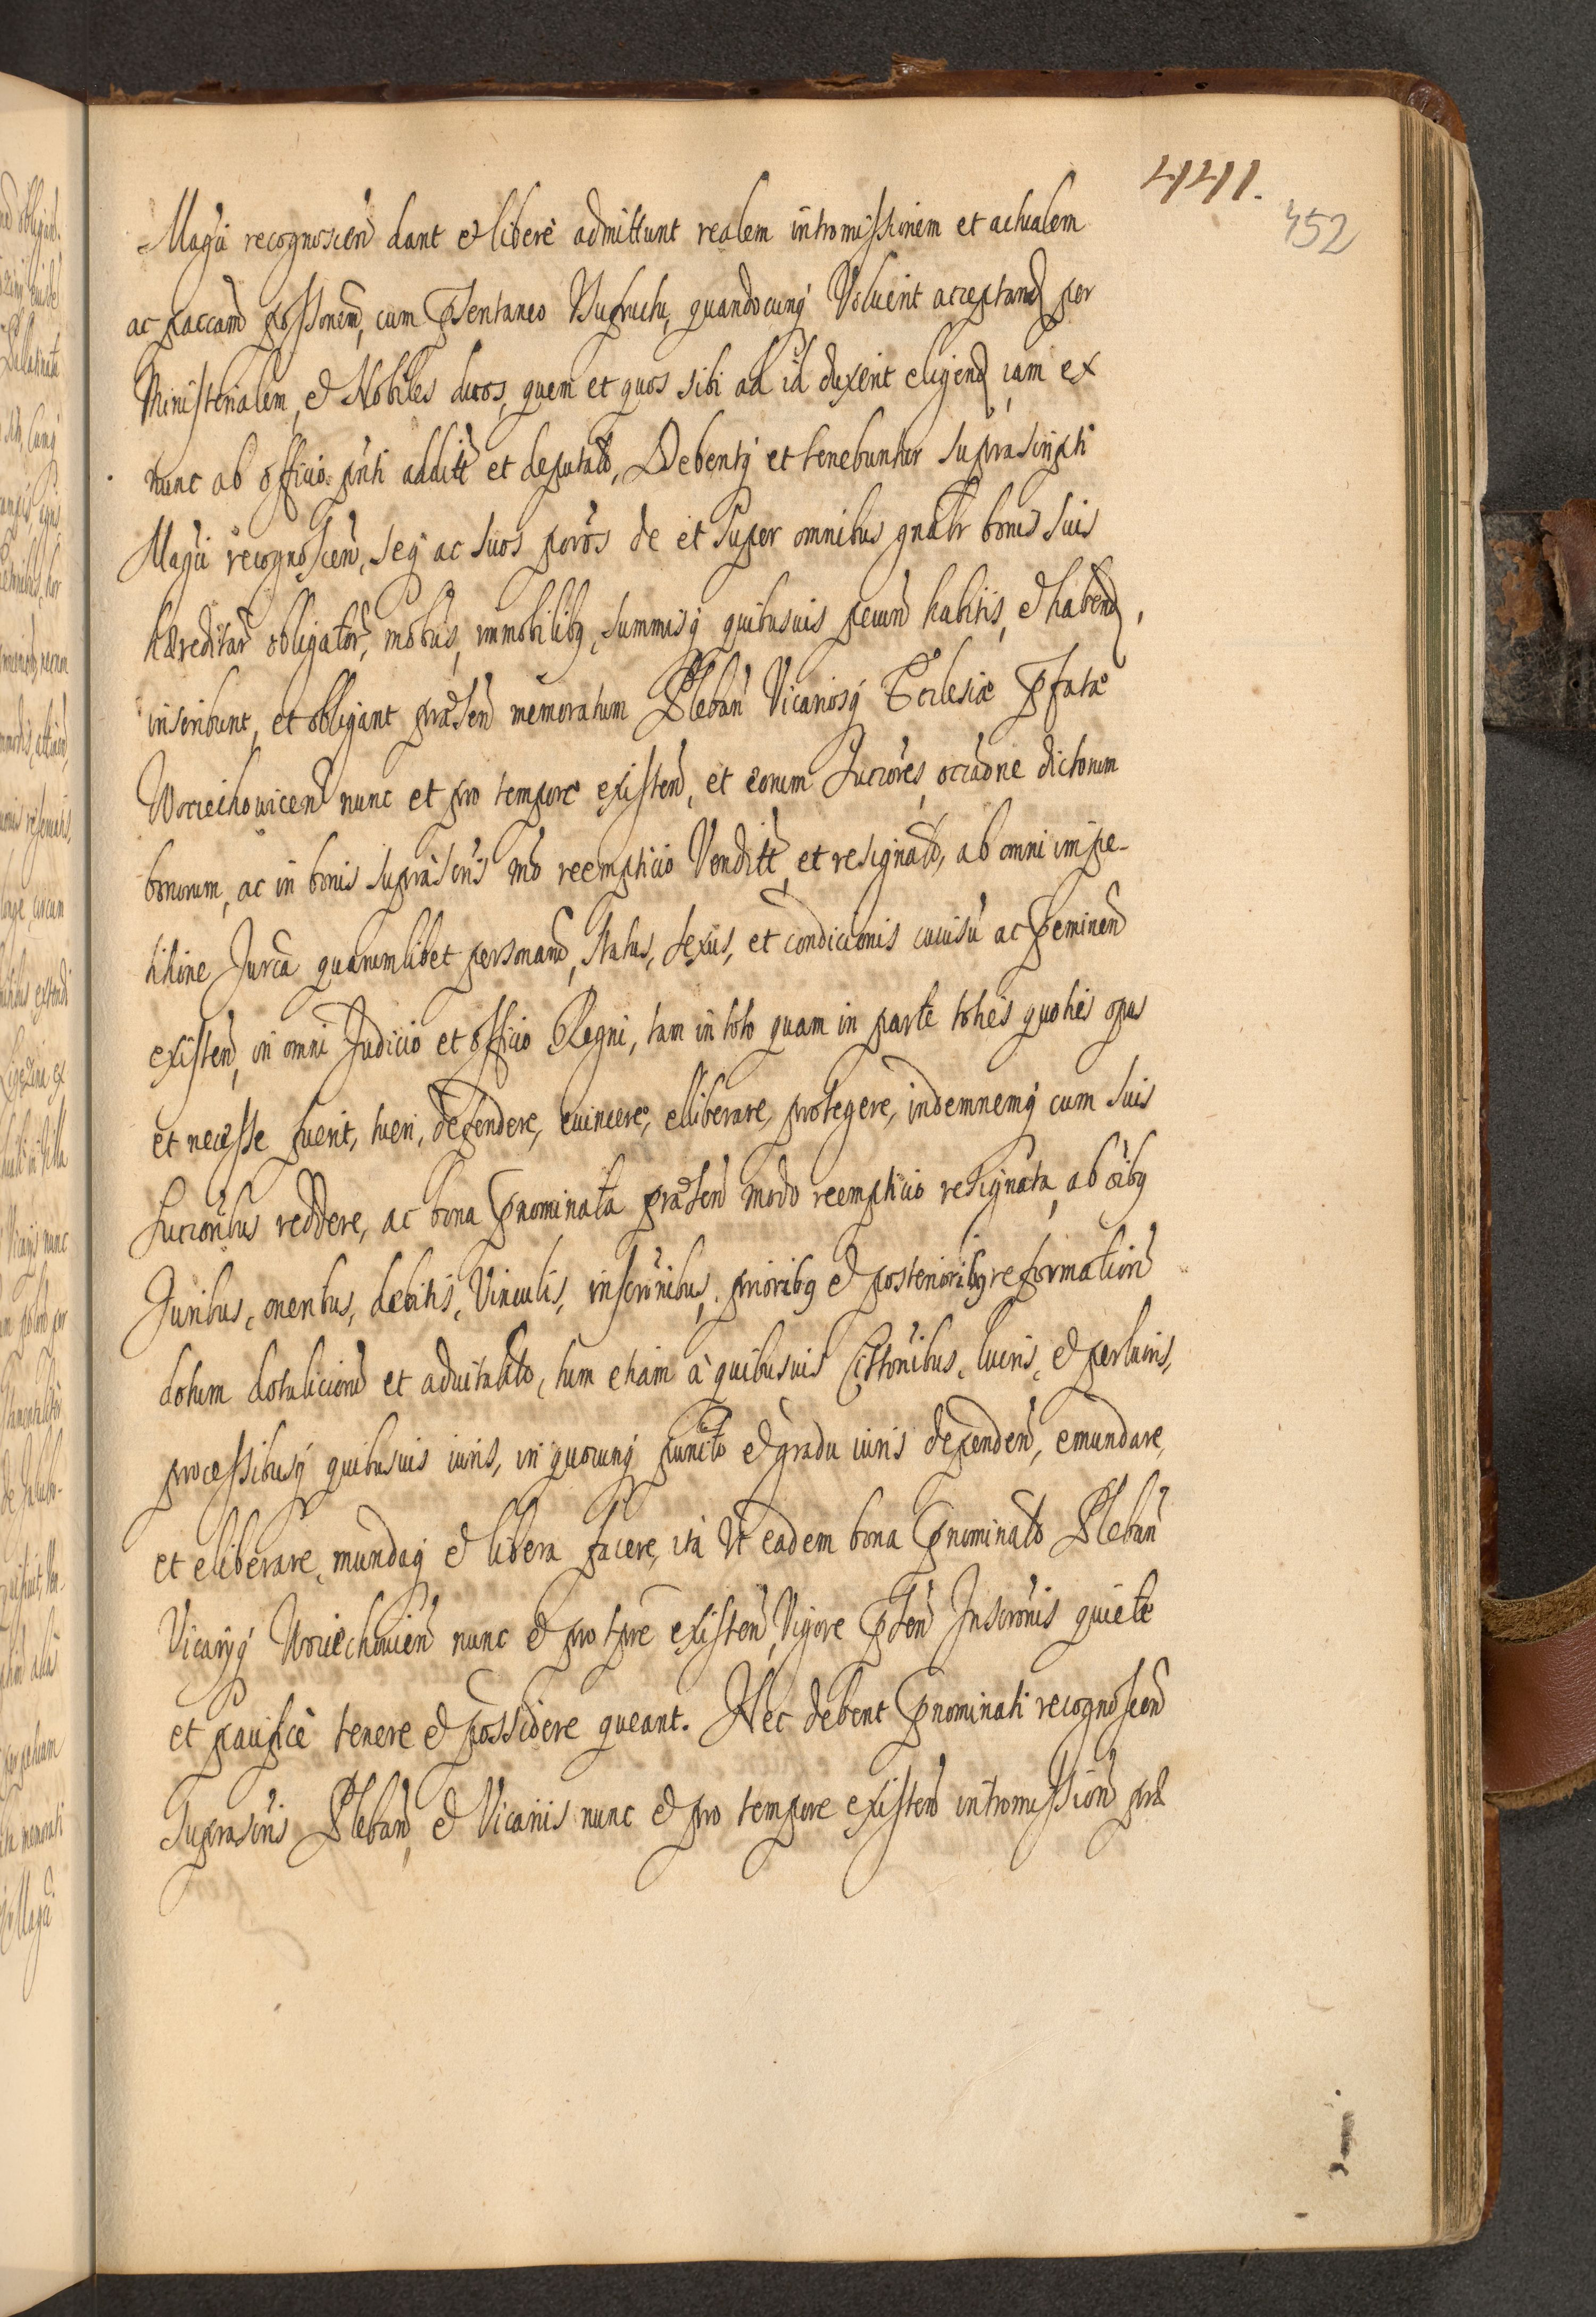 441.
452
Magci recognoscen dant et liberè admittunt realem intromissionem et actualem
ac paccam possonem, cum Psentaneo Usufructu, quandocunq Voluerit acceptand per
Ministerialem, et Nobiles duos, quem et quos sibi ad id duxerit eligend, iam ex
nunc ab officio pnti additt et deputatt, Debentq et tenebuntur suprascripti
Magci recognoscen, seq ac suos porōs de et super omnibus gnalr bonis suis
hæreditar obligator, mobus, immobilibq, summisq quibusuis pecun habitis, et habend,
inscribunt, et obligant præsen memoratum Pleban Vicariosq Ecclesiæ Pfatæ
Wociechouicen nunc et pro tempore existen, et eorum Succores, occaone dictorum
bonorum, ac in bonis suprascris mo reempticio Venditt, et resignatt, ab omni impe-
titione Jurca quarumlibet personarum, status, sexus, et condicionis cuiusu ac Peminen
existen, in omni Judicio et officio Regni, tam in toto quam in parte toties quoties opus
et necesse fuerit, tueri, defendere, euincere, eliberare, protegere, indemnemq cum suis
Succoribus reddere, ac bona Pnominata præsen modo reempticio resignata, ab oibq
Juribus, oneribus, debitis, Vinculis, inscronibus, prioribq et posterioribq reformation
dotum dotalicioru et aduitalitt, tum etiam à quibusuis Cittonibus, lucris, et perlucris,
processibusq quibusuis iuris, in quocunq puncto et gradu iuris dependen, emundare,
et eliberare, mundaq et libera facere, ità Vt eadem bona Pnominatt Pleban
Vicarÿq Wociechouien nunc et pro tpre existen, Vigore Psen Inscronis quietè
et pacificè tenere et possidere queant. Nec debent Pnominati recognoscen
Suprascris Pleban, et Vicarijs nunc et pro tempore existen intromission præ